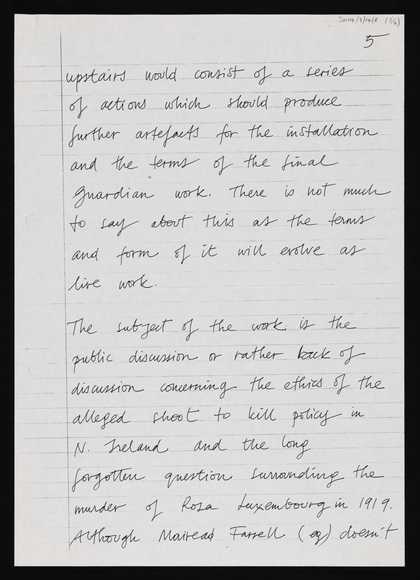 5
upstairs would consist of a series
of actions which should produce
further artefacts for the installation
and the terms of the final
Guardian work. There is not much
to say about this as the terms
and form of it will evolve as
live work.
The subject of the work is the
public discussion or rather lack of
discussion concerning the ethics of the
alleged shoot to kill policy in
N. Ireland and the long
forgotten question surrounding the
murder of Rosa Luxembourg in 1919.
Although Mairead Farrell (eg) doesn't